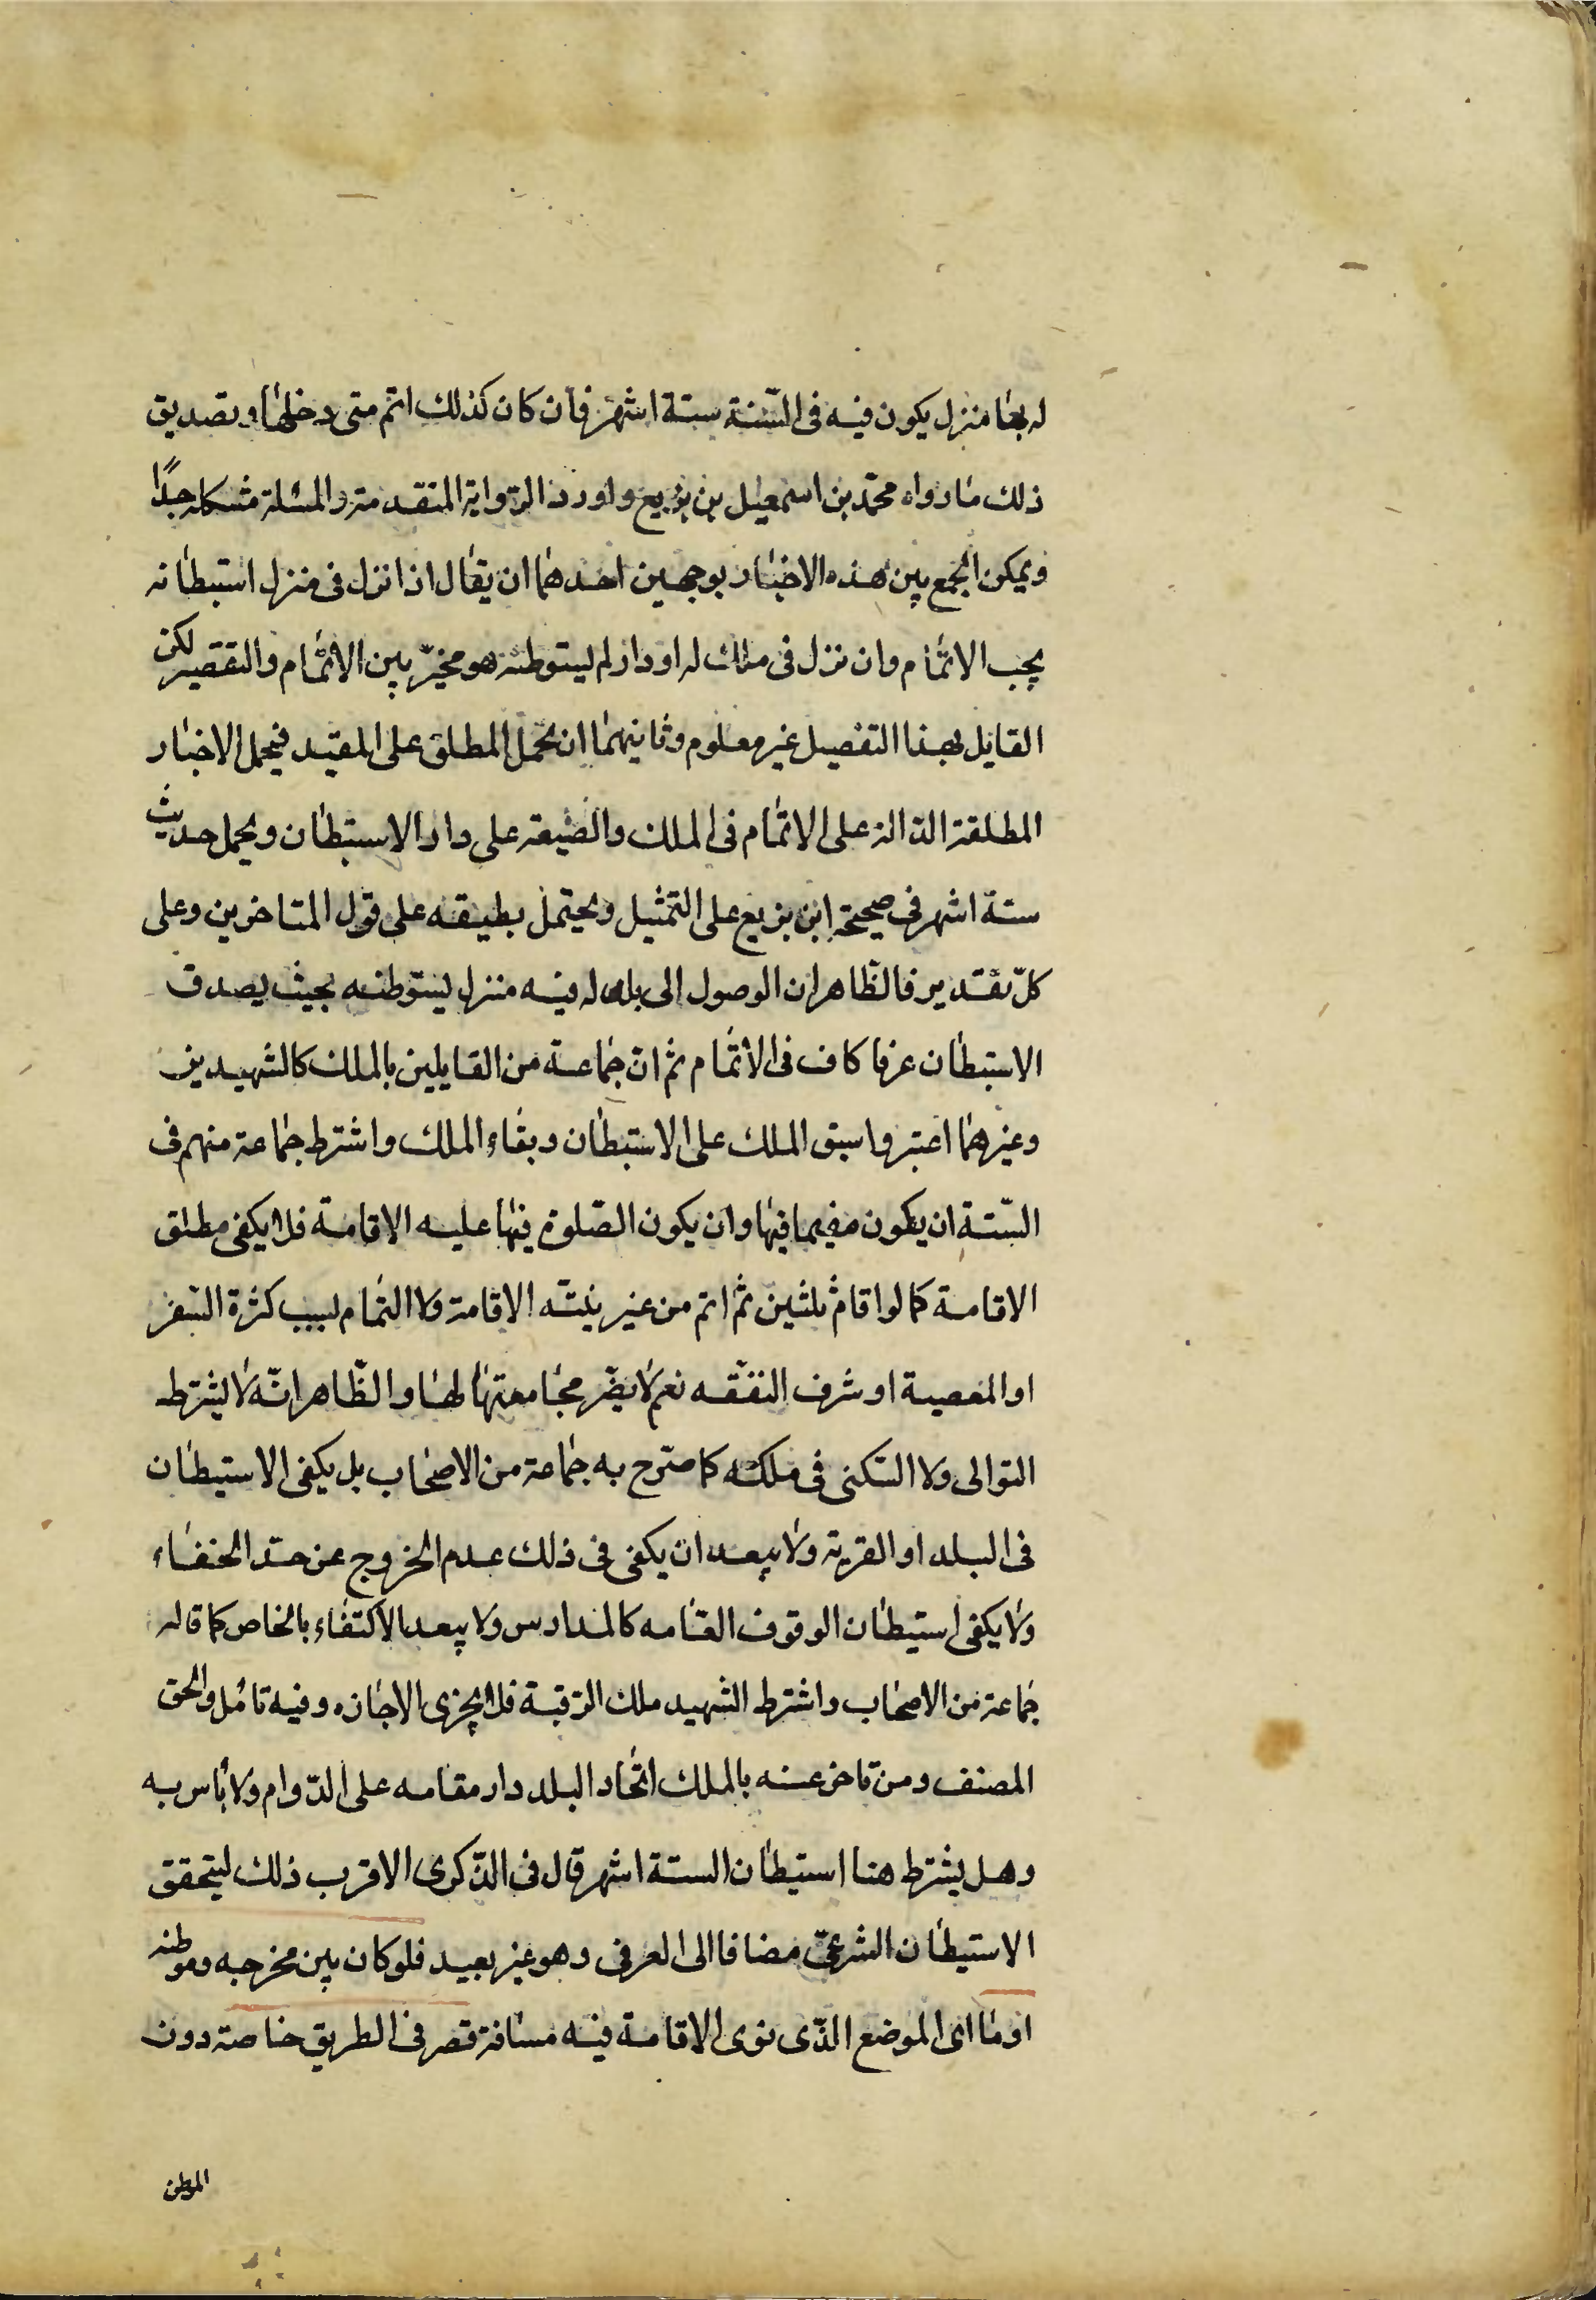 له بها منزل يكون فيه فى السّنة ستة اشهر فان كان كذلك اتم متى دخلها وتصديق
ذلك ما رواه محمّد بن اسمعيل بن بزيع واورد الرّواية المتقدمة والمسئلة مشكلة جدًّا
ويمكن الجمع بين هذه الاخبار بوجهين احدهما ان يقال اذا نزل فى منزل استيطانه
يجب الاتمام وان نزل فى ملك له او دار لم يستوطنه هو مخيّر بين الاتمام والتقصير لكن
القايل بهذا التفصيل غير معلوم وثانيهما ان يحمل المطلق على المقيّد فيحمل الاخبار
المطلقة الدّالة على الاتمام فى الملك والضيعة على دار الاستيطان ويحمل حديث
ستة اشهر فى صحيحة ابن بزيع على التمثيل ويحتمل بطيقه على قول المتاخرين وعلى
كلّ تقدير فالظّاهر ان الوصول الى بلد له فيه منزل يستوطنه بحيث يصدق
الاستيطان عرفا كاف فى الاتمام ثم انّ جماعة من القايلين بالملك كالشهيدين
وغيرهما اعتبروا سبق الملك على الاستيطان وبقاء الملك واشترط جماعة منهم فى
السّتة ان يكون مقيما فيها وان يكون الصّلوة فيها عليه الاقامة فلا يكفى مطلق
الاقامة كما لو اقام ثلثين ثم اتم من غير نيّة الاقامة ولا التمام لسبب كثرة السّفر
او المعصية او شرف البقّعة نعم لا يضرّ مجامعتها لها والظّاهر انّه لا يشترط
التوالى ولا السّكنى فى ملكه كما صرّح به جماعة من الاصحاب بل يكفى الاستيطان
فى البلد او القرية ولا يبعد ان يكفى فى ذلك عدم الخروج عن حدّ الخفاء
ولا يكفى استيطان الوقوف العامه كالمدارس ولا يبعد الاكتفاء بالخاص كما قاله
جماعة من الاصحاب واشترط الشهيد ملك الرّقبة فلا يجزى الاجازه وفيه تامل والحق
المصنف ومن تاخر عنه بالملك اتّخاد البلد دار مقامه على الدّوام ولا باس به
وهل يشترط هنا استيطان الستة اشهر قال فى الذّكرى الاقرب ذلك ليتحقق
الاستيطان الشرعىّ مضافا الى العرفى وهو غير بعيد فلو كان بين مخرجه وموطنه
او ما اى الموضع الذّى نوى الاقامة فيه مسافة قصر فى الطريق خاصة دون
الموطن